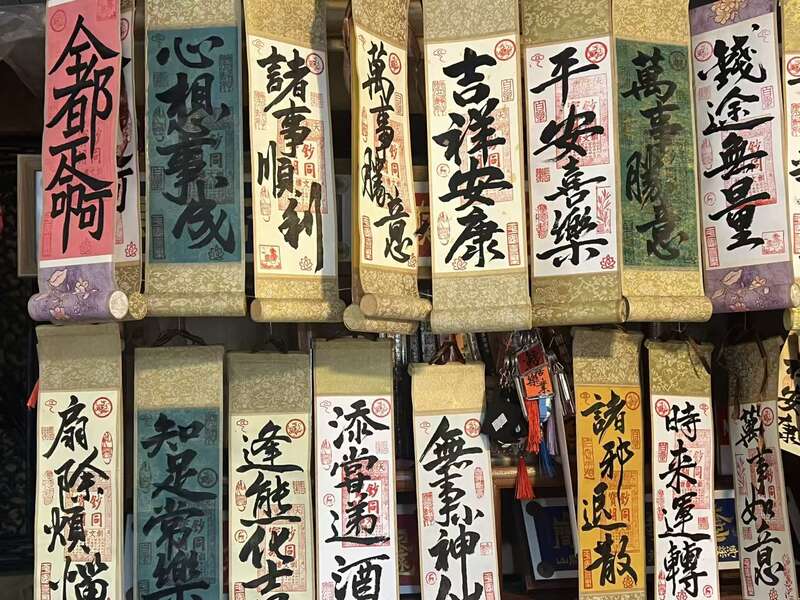 全都正啊
心想事成
諸事順利
萬事勝意
吉祥安康
平安喜樂
萬事勝意
錢途無量
扇除煩惱
知足常樂
逢能化吉
添當遞酒
無事小神仙
諸邪退散
時来運轉
萬事如意
安康